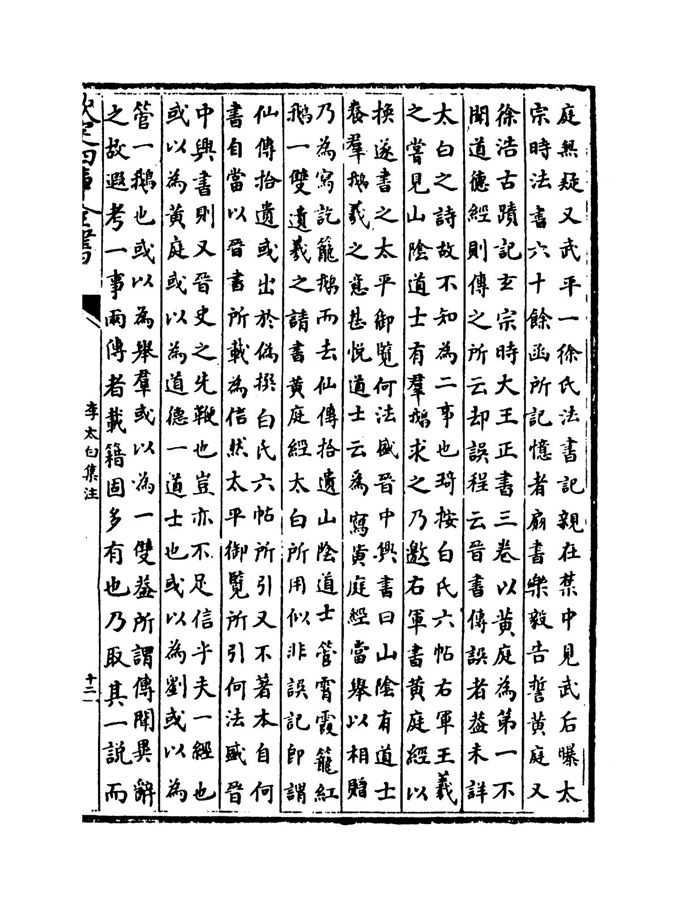 庭無疑又武平一徐氏法書記親在禁中見武后曝太
宗時法書六十餘函所記憶者扇書樂毅告誓黄庭又
徐浩古蹟記玄宗時大王正書三卷以黄庭為第一不
聞道德經則傳之所云却誤程云晉書傳誤者葢未詳
太白之詩故不知為二事也琦按白氏六帖右軍王羲
之嘗見山陰道士有羣鵝求之乃邀右軍書黄庭經以
換遂書之太平御覽何法盛晉中興書曰山陰有道士
養羣鵝羲之意甚悦道士云為寫黄庭經當舉以相贈
乃為寫訖籠鵝而去仙傳拾遺山陰道士管霄霞籠紅
鵝一雙遺羲之請書黄庭經太白所用似非誤記即謂
仙傳拾遺或出於偽撰白氏六帖所引又不著本自何
書自當以晉書所載為信然太平御覽所引何法盛晉
中興書則又晉史之先鞭也豈亦不足信乎夫一經也
或以為黄庭或以為道德一道士也或以為劉或以為
管一鵝也或以為舉羣或以為一雙葢所謂傳聞異辭
之故遐考一事兩傳者載籍固多有也乃取其一說而
欽定四庫全書
李太白集注
十二